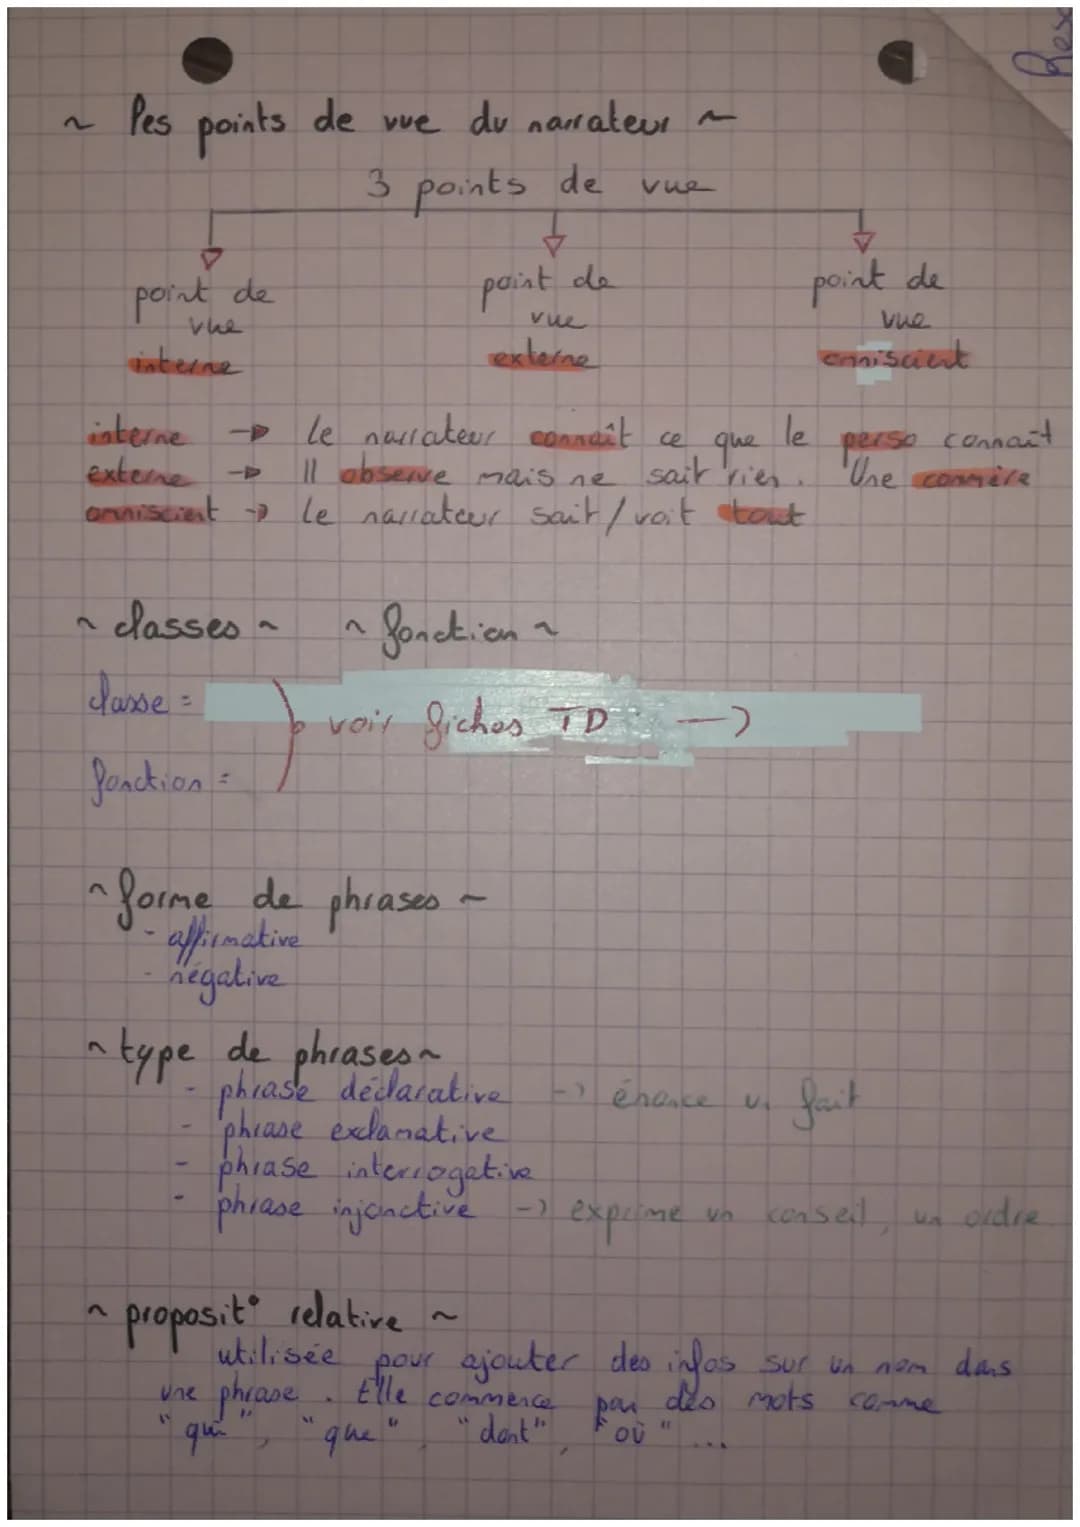 ~ les points de vue du narrateur ~
3 points de vue
point de vue interne
point de vue externe
point de vue omniscient
interne -> Le narrateur connaît ce que le perso connaît
externe -> Il observe mais ne sait rien. Une commère
omniscient -> Le narrateur sait/voit tout
~ classes ~ ~ fonction ~
classe =
voir fiches TD ->
fonction =
~ forme de phrases ~
- affirmative
- négative
~ type de phrases ~
- phrase déclarative -> énonce un fait
- phrase exclamative
- phrase interrogative
- phrase injonctive -> exprime un conseil, un ordre
~ proposit° relative ~
utilisée pour ajouter des infos sur un nom dans
une phrase. Elle commence par des mots comme
"qui", "que", "dont", "où" ...